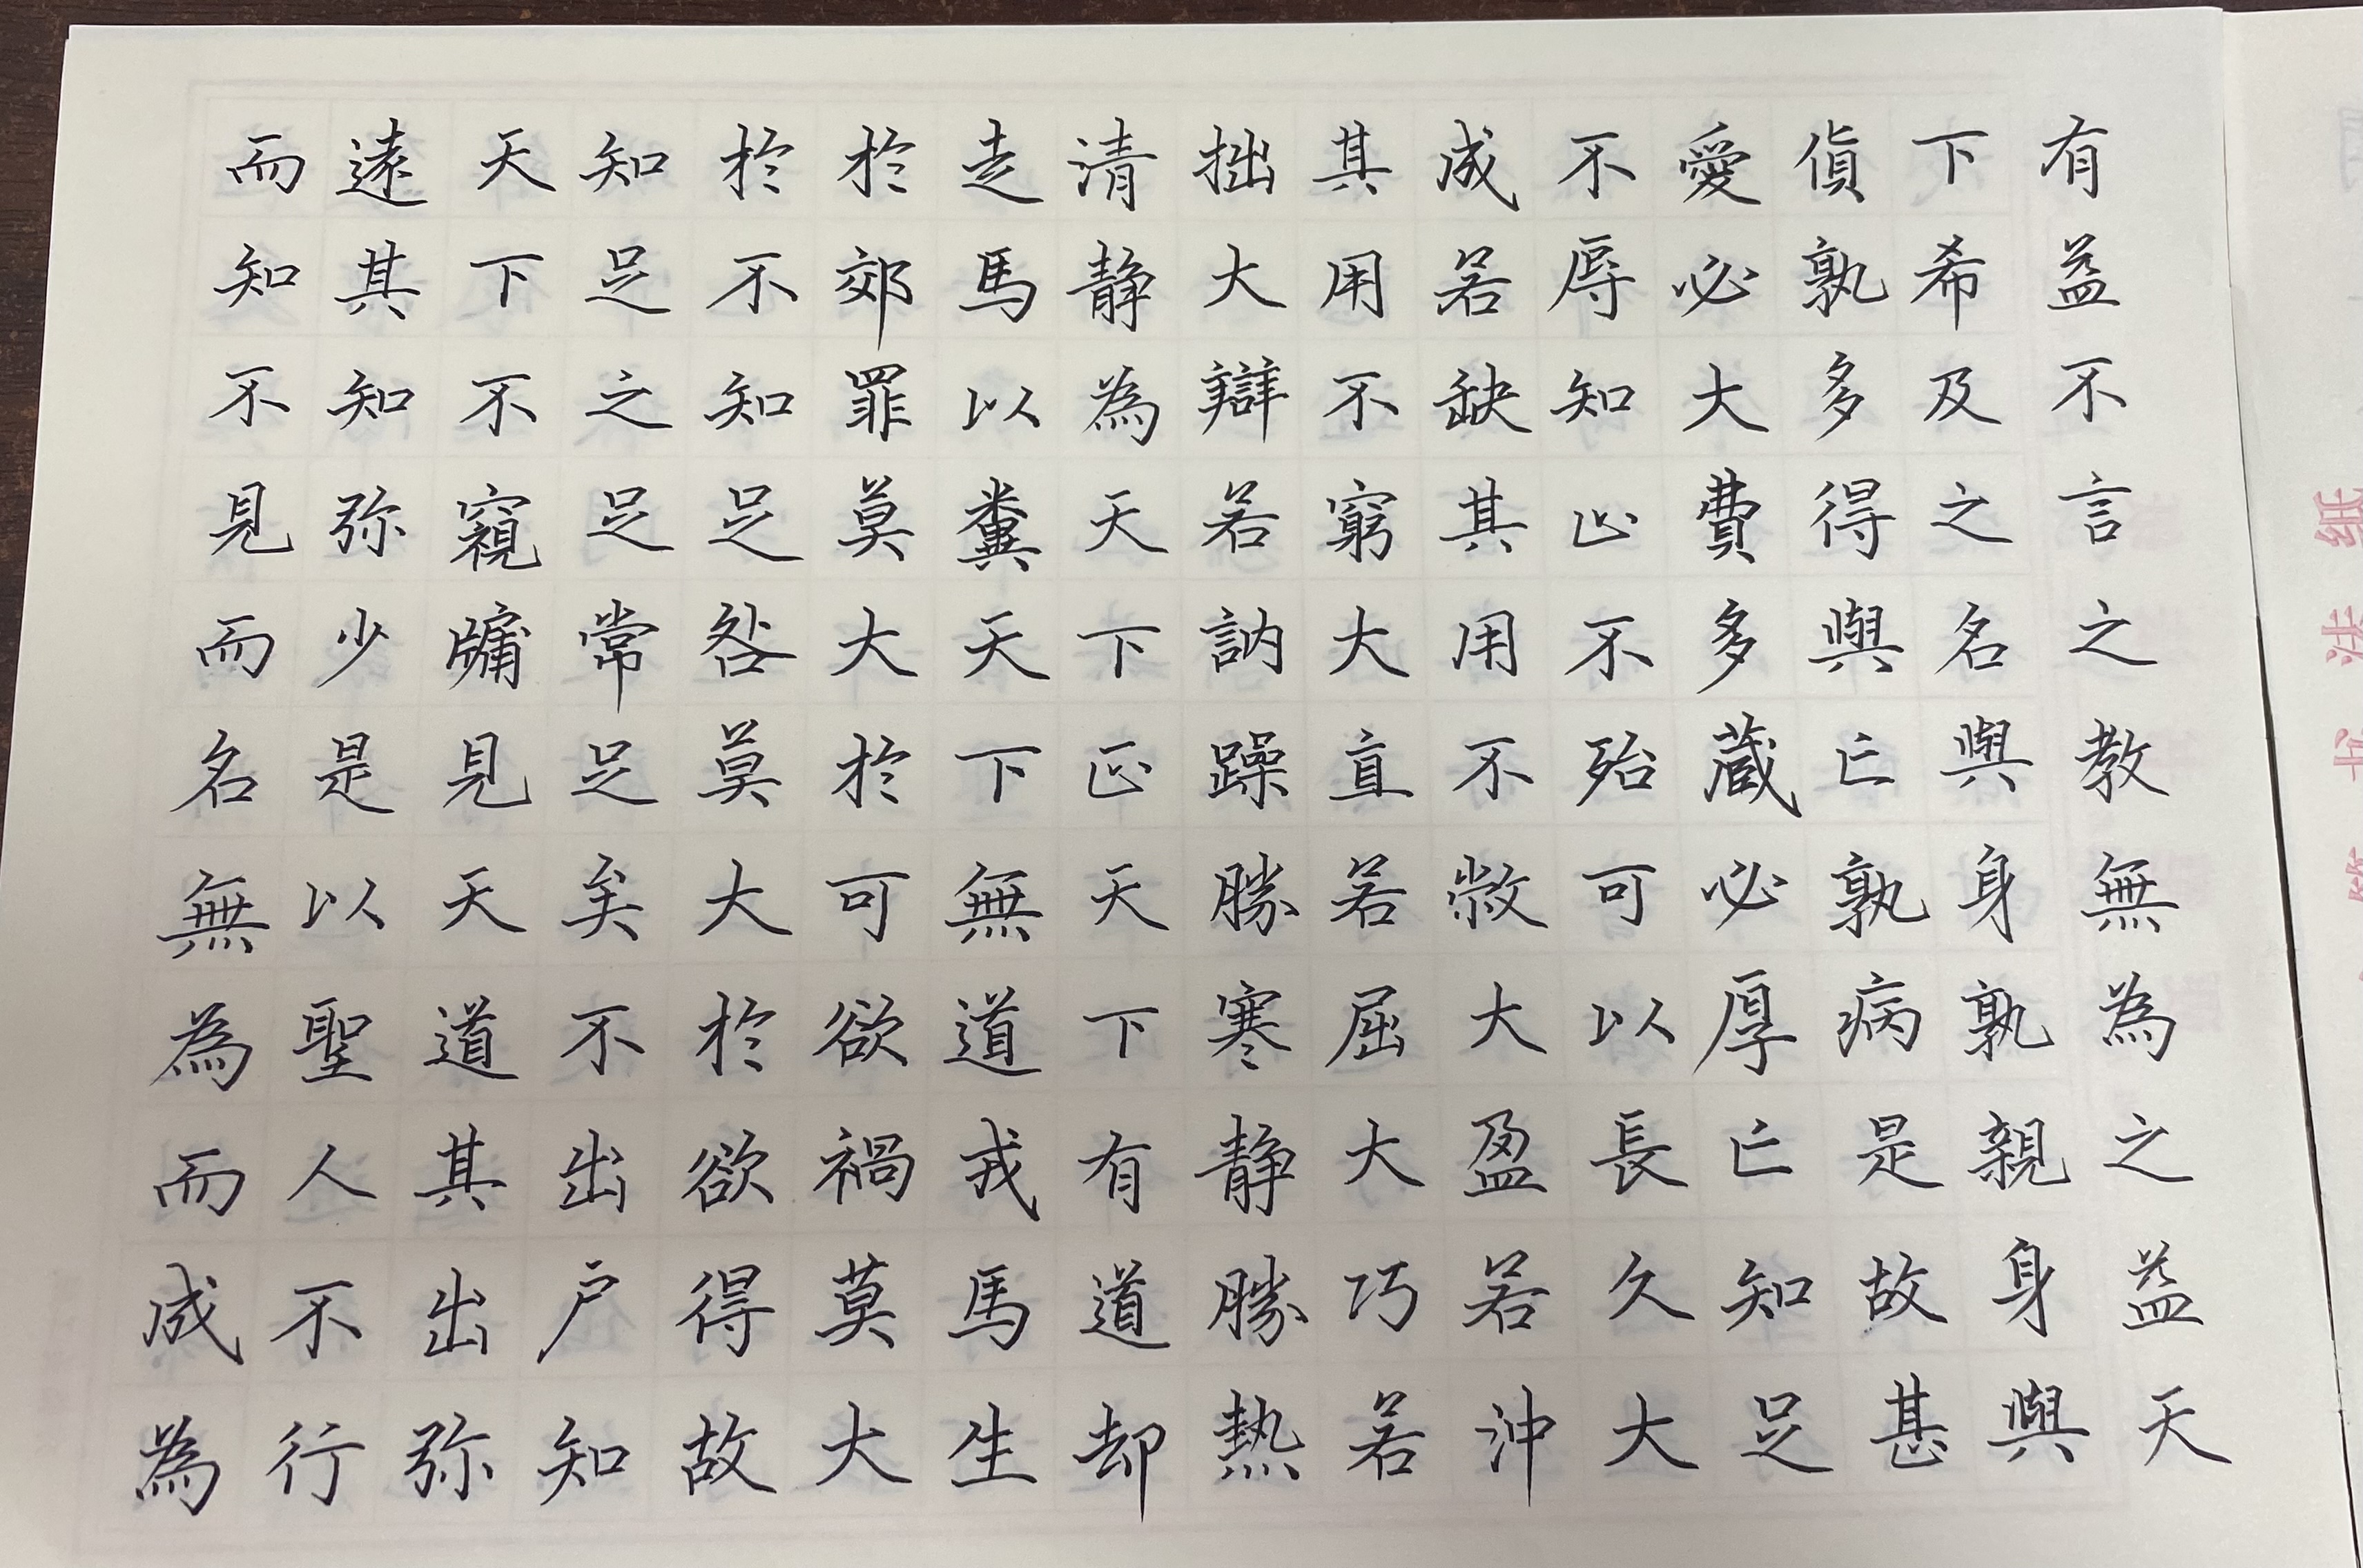 有益不言之教無為之益天
下希及之名與身孰親身與
貨孰多得與亡孰病是故甚
愛必大費多蔵必厚亡知足
不辱知止不殆可以長久大
成若缺其用不敝大盈若沖
其用不窮大直若屈大巧若
拙大辯若訥躁勝寒静勝熱
清静為天下正天下有道却
走馬以糞天下無道戎馬生
於郊罪莫大於可欲禍莫大
於不知足咎莫大於欲得故
知足之足常足矣不出户知
天下不窺牖見天道其出弥
遠其知弥少是以聖人不行
而知不見而名無為而成為